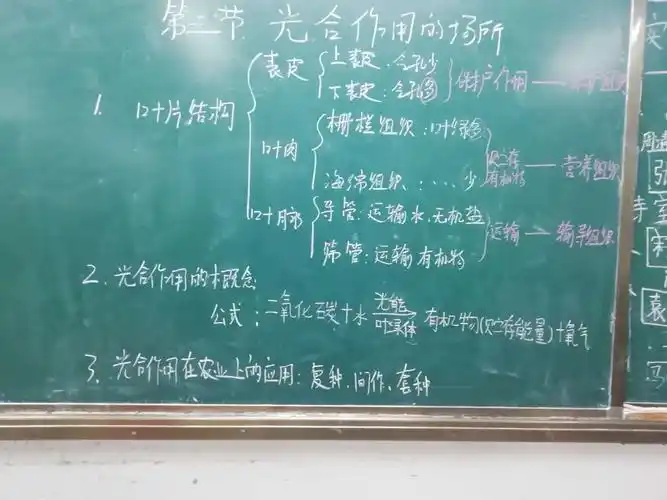 第二节 光合作用的场所
1. 叶片结构
表皮
上表皮:气孔少
下表皮:气孔多
保护作用 — 保护组织
叶肉
栅栏组织:叶绿多
海绵组织:... 少
贮存有机物 — 营养组织
叶脉
导管:运输水、无机盐
筛管:运输有机物
运输 — 输导组织
2. 光合作用的概念
公式:二氧化碳+水 光能 叶绿体 → 有机物(贮存能量)+氧气
3. 光合作用在农业上的应用:复种、间作、套种